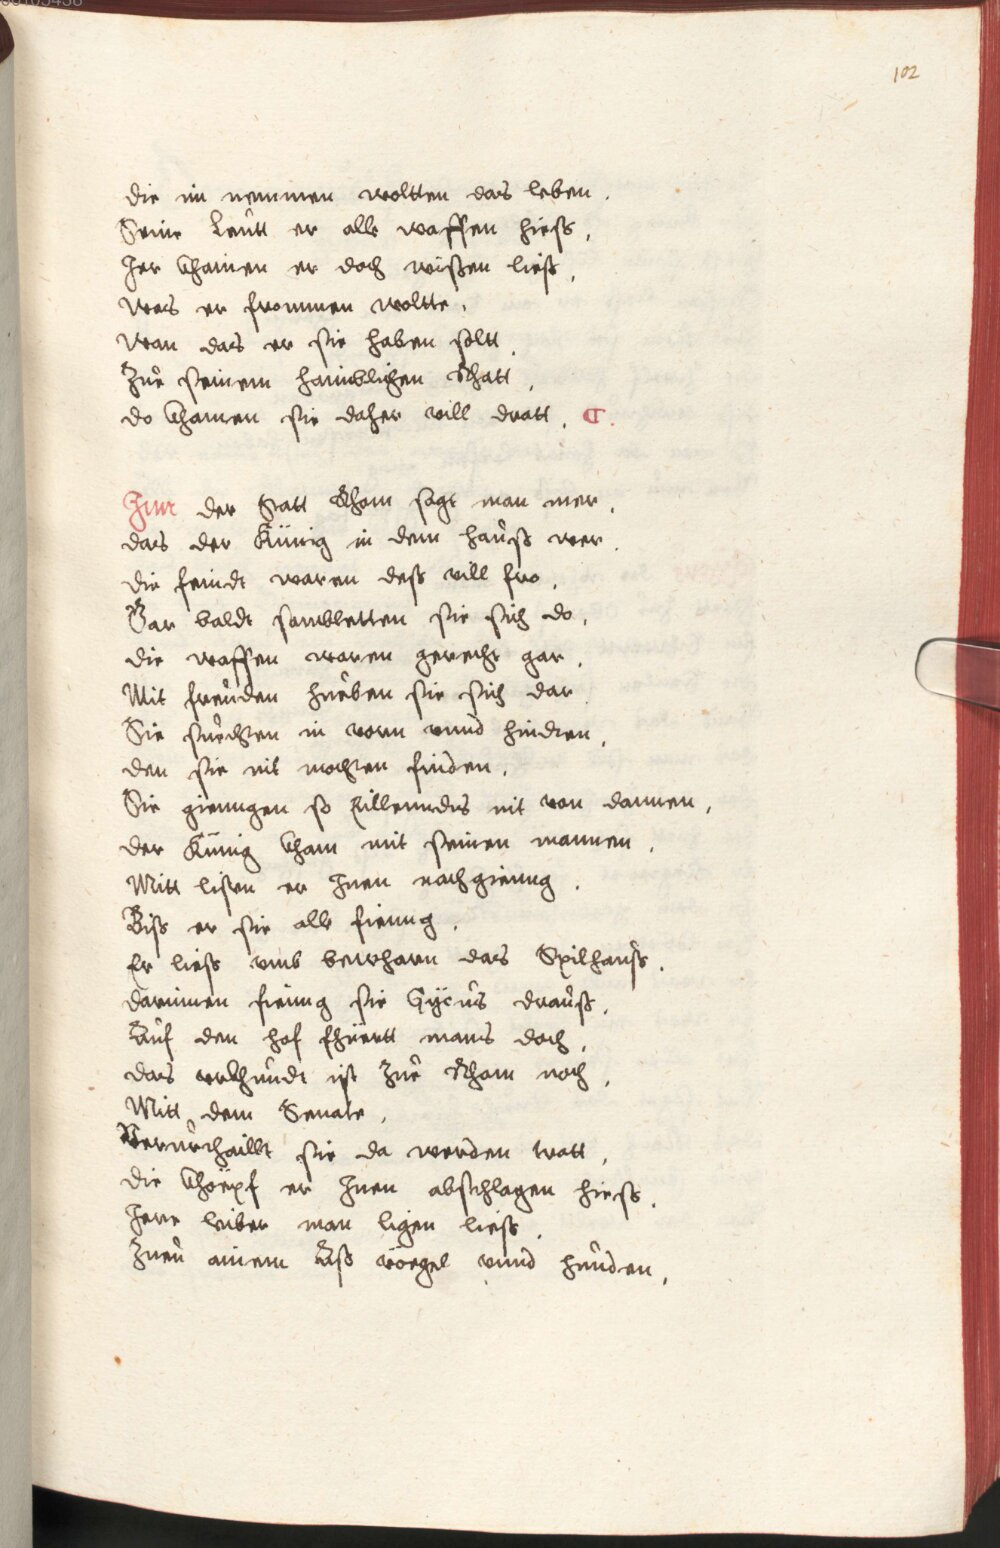 102
die im nemmen woltten das leben.
Seine Leütt er alle waffen hiess,
Jer khainen er doch wissen liess,
was er frommen woltte,
wan das er sie haben soltt,
Zue seinem haimblichen Rhatt,
do khamen sie daher vill dratt. C.
Jnn der Statt Rhom sagt man mer,
das der Künig in dem hauss wer.
die feindt waren dess vill fro,
Gar baldt sambletten sie sich do,
die waffen waren gerecht gar,
Mit freüden hueben sie sich dar.
Sie suechten in vorn vnnd hindten,
den sie nit mochten finden.
Sie giengen so eillenndts nit von dannen,
der Künig kham mit seinen mannen,
Mitt listen er Jnen nachgienng,
Biss er sie alle fienng,
Er liess vmb bewharn das Spilhauss,
darinnen fienng sie Gÿcüs drauss,
Auf den hof fhüertt mans doch,
das vrkhündt ist Zue Rhom noch,
Mitt dem Senate,
Verurthaillt sie da werden tratt,
die khöepf er Jnen abschlagen hiess,
Jere leiber man ligen liess,
Zueu ainem Ass vöegel vnnd hunden,